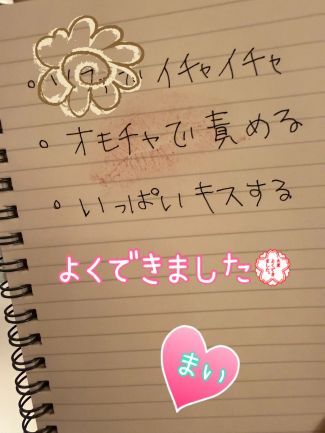 イチャイチャ
オモチャで責める
いっぱいキスする
よくできました
まい